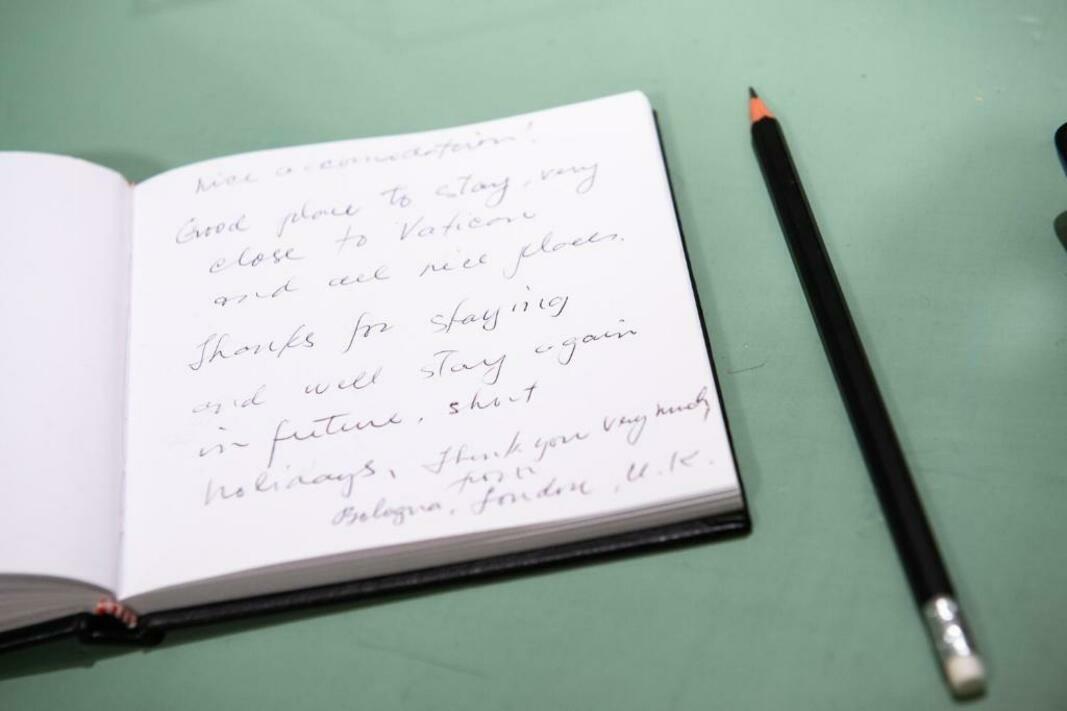 Nice accomodation!
Good place to stay, very
close to Vatican
and all nice places.
Thanks for staying
and well stay again
in future, short
holidays, Thank you very much
from
Bologna, London, U.K.